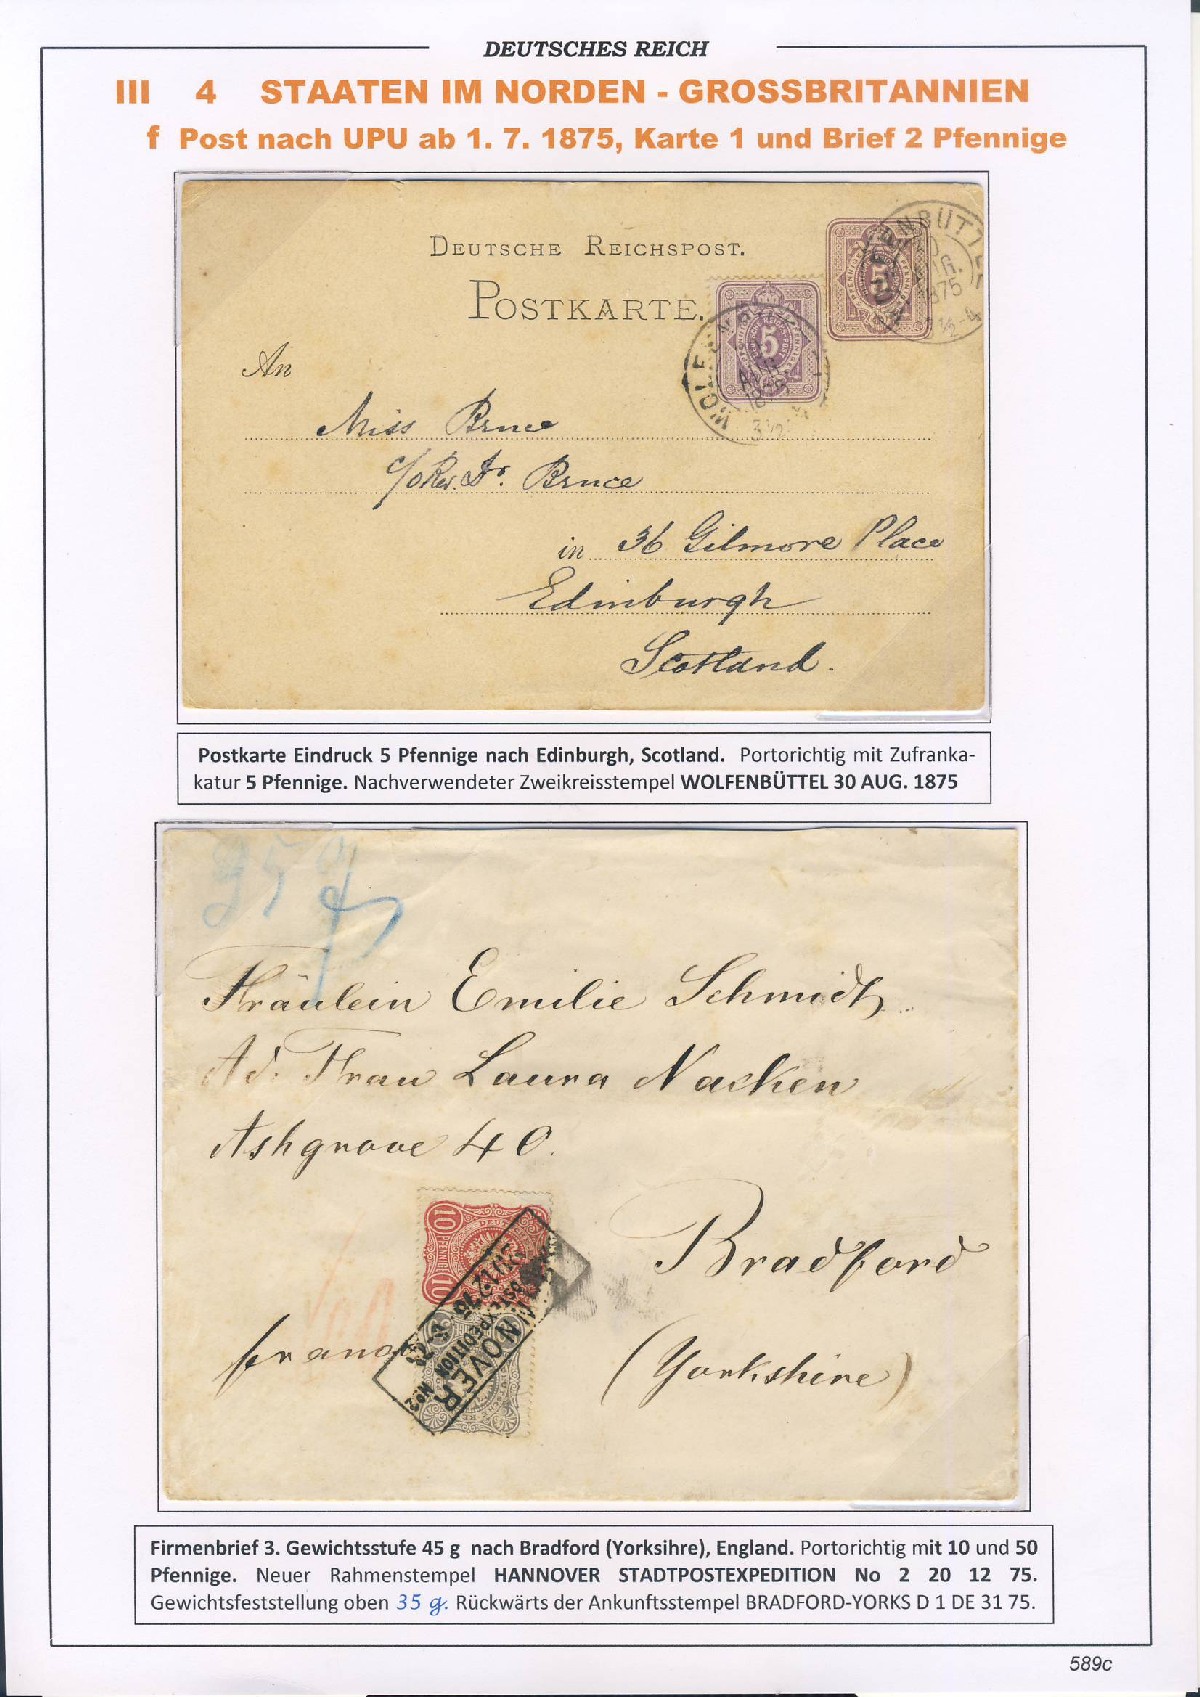 DEUTSCHES REICH
III 4 STAATEN IM NORDEN - GROSSBRITANNIEN
f Post nach UPU ab 1. 7. 1875, Karte 1 und Brief 2 Pfennige
DEUTSCHE REICHSPOST.
POSTKARTE.
5
5
AUG.
1875
An
Miss Bruce
c/o Rev. Dr. Bruce
in 36 Gilmore Place
Edinburgh
Scotland.
Postkarte Eindruck 5 Pfennige nach Edinburgh, Scotland. Portorichtig mit Zufranka-
katur 5 Pfennige. Nachverwendeter Zweikreisstempel WOLFENBÜTTEL 30 AUG. 1875
35 g
Fräulein Emilie Schmidt
Ad. Frau Laura Nacken
Ashgrove 40.
Bradford
franco
(Yorkshire)
10
10
HANNOVER
Firmenbrief 3. Gewichtsstufe 45 g nach Bradford (Yorksihre), England. Portorichtig mit 10 und 50
Pfennige. Neuer Rahmenstempel HANNOVER STADTPOSTEXPEDITION No 2 20 12 75.
Gewichtsfeststellung oben 35 g. Rückwärts der Ankunftsstempel BRADFORD-YORKS D 1 DE 31 75.
589c